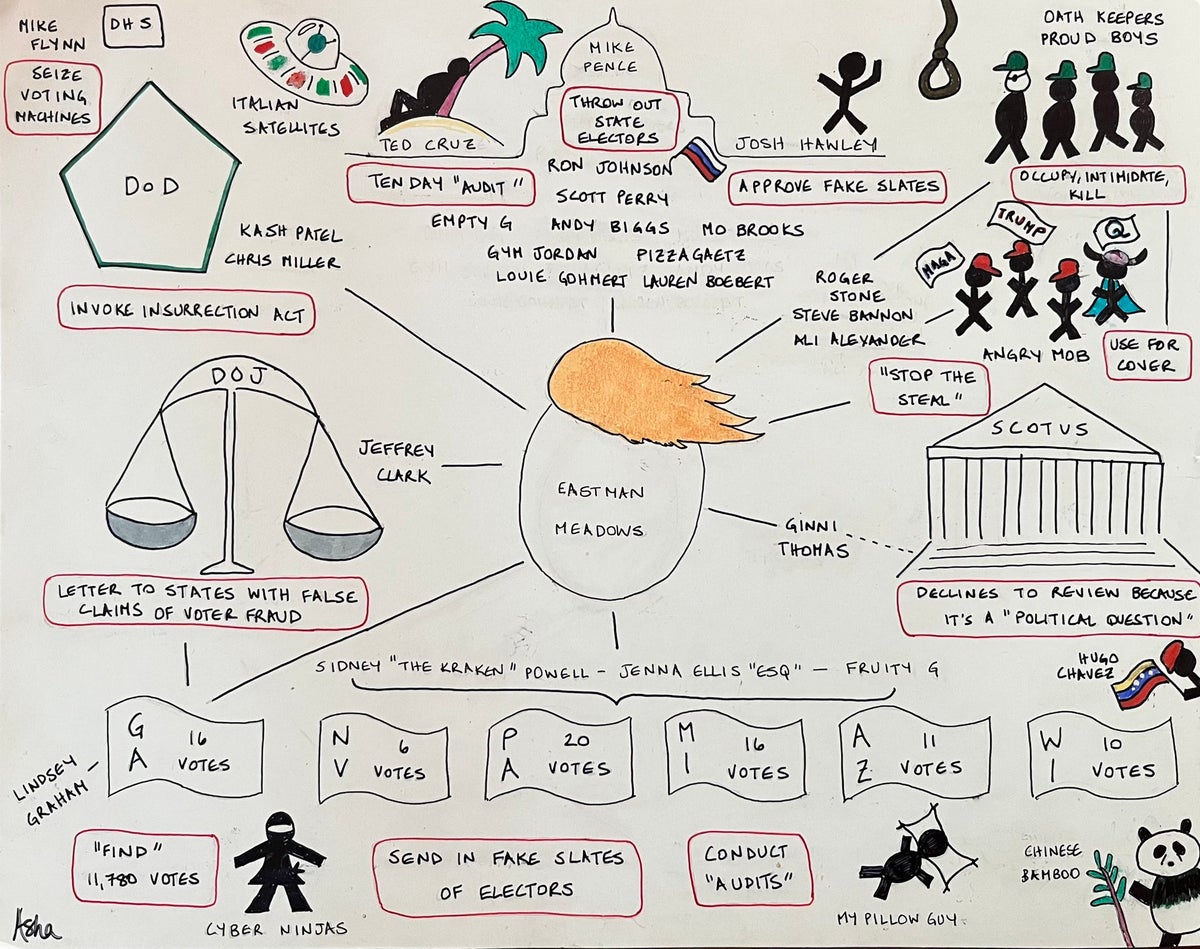 MIKE
FLYNN
DHS
SEIZE
VOTING
MACHINES
ITALIAN
SATELLITES
DOD
KASH PATEL
CHRIS MILLER
INVOKE INSURRECTION ACT
TED CRUZ
TEN DAY "AUDIT"
MIKE
PENCE
THROW OUT
STATE
ELECTORS
JOSH HAWLEY
APPROVE FAKE SLATES
RON JOHNSON
SCOTT PERRY
EMPTY G ANDY BIGGS MO BROOKS
GYM JORDAN PIZZAGAETZ
LOUIE GOHMERT LAUREN BOEBERT
OATH KEEPERS
PROUD BOYS
OCCUPY, INTIMIDATE,
KILL
ROGER
STONE
STEVE BANNON
ALI ALEXANDER
MAGA
TRUMP
Q
ANGRY MOB
USE FOR
COVER
"STOP THE
STEAL"
DOJ
JEFFREY
CLARK
LETTER TO STATES WITH FALSE
CLAIMS OF VOTER FRAUD
EASTMAN
MEADOWS
GINNI
THOMAS
SCOTUS
DECLINES TO REVIEW BECAUSE
IT'S A "POLITICAL QUESTION"
SIDNEY "THE KRAKEN" POWELL - JENNA ELLIS "ESQ" - FRUITY G
HUGO
CHAVEZ
GA 16
VOTES
NV 6
VOTES
PA 20
VOTES
MI 16
VOTES
AZ 11
VOTES
WI 10
VOTES
LINDSEY
GRAHAM
"FIND"
11,780 VOTES
CYBER NINJAS
SEND IN FAKE SLATES
OF ELECTORS
CONDUCT
"AUDITS"
MY PILLOW GUY
CHINESE
BAMBOO
Asha